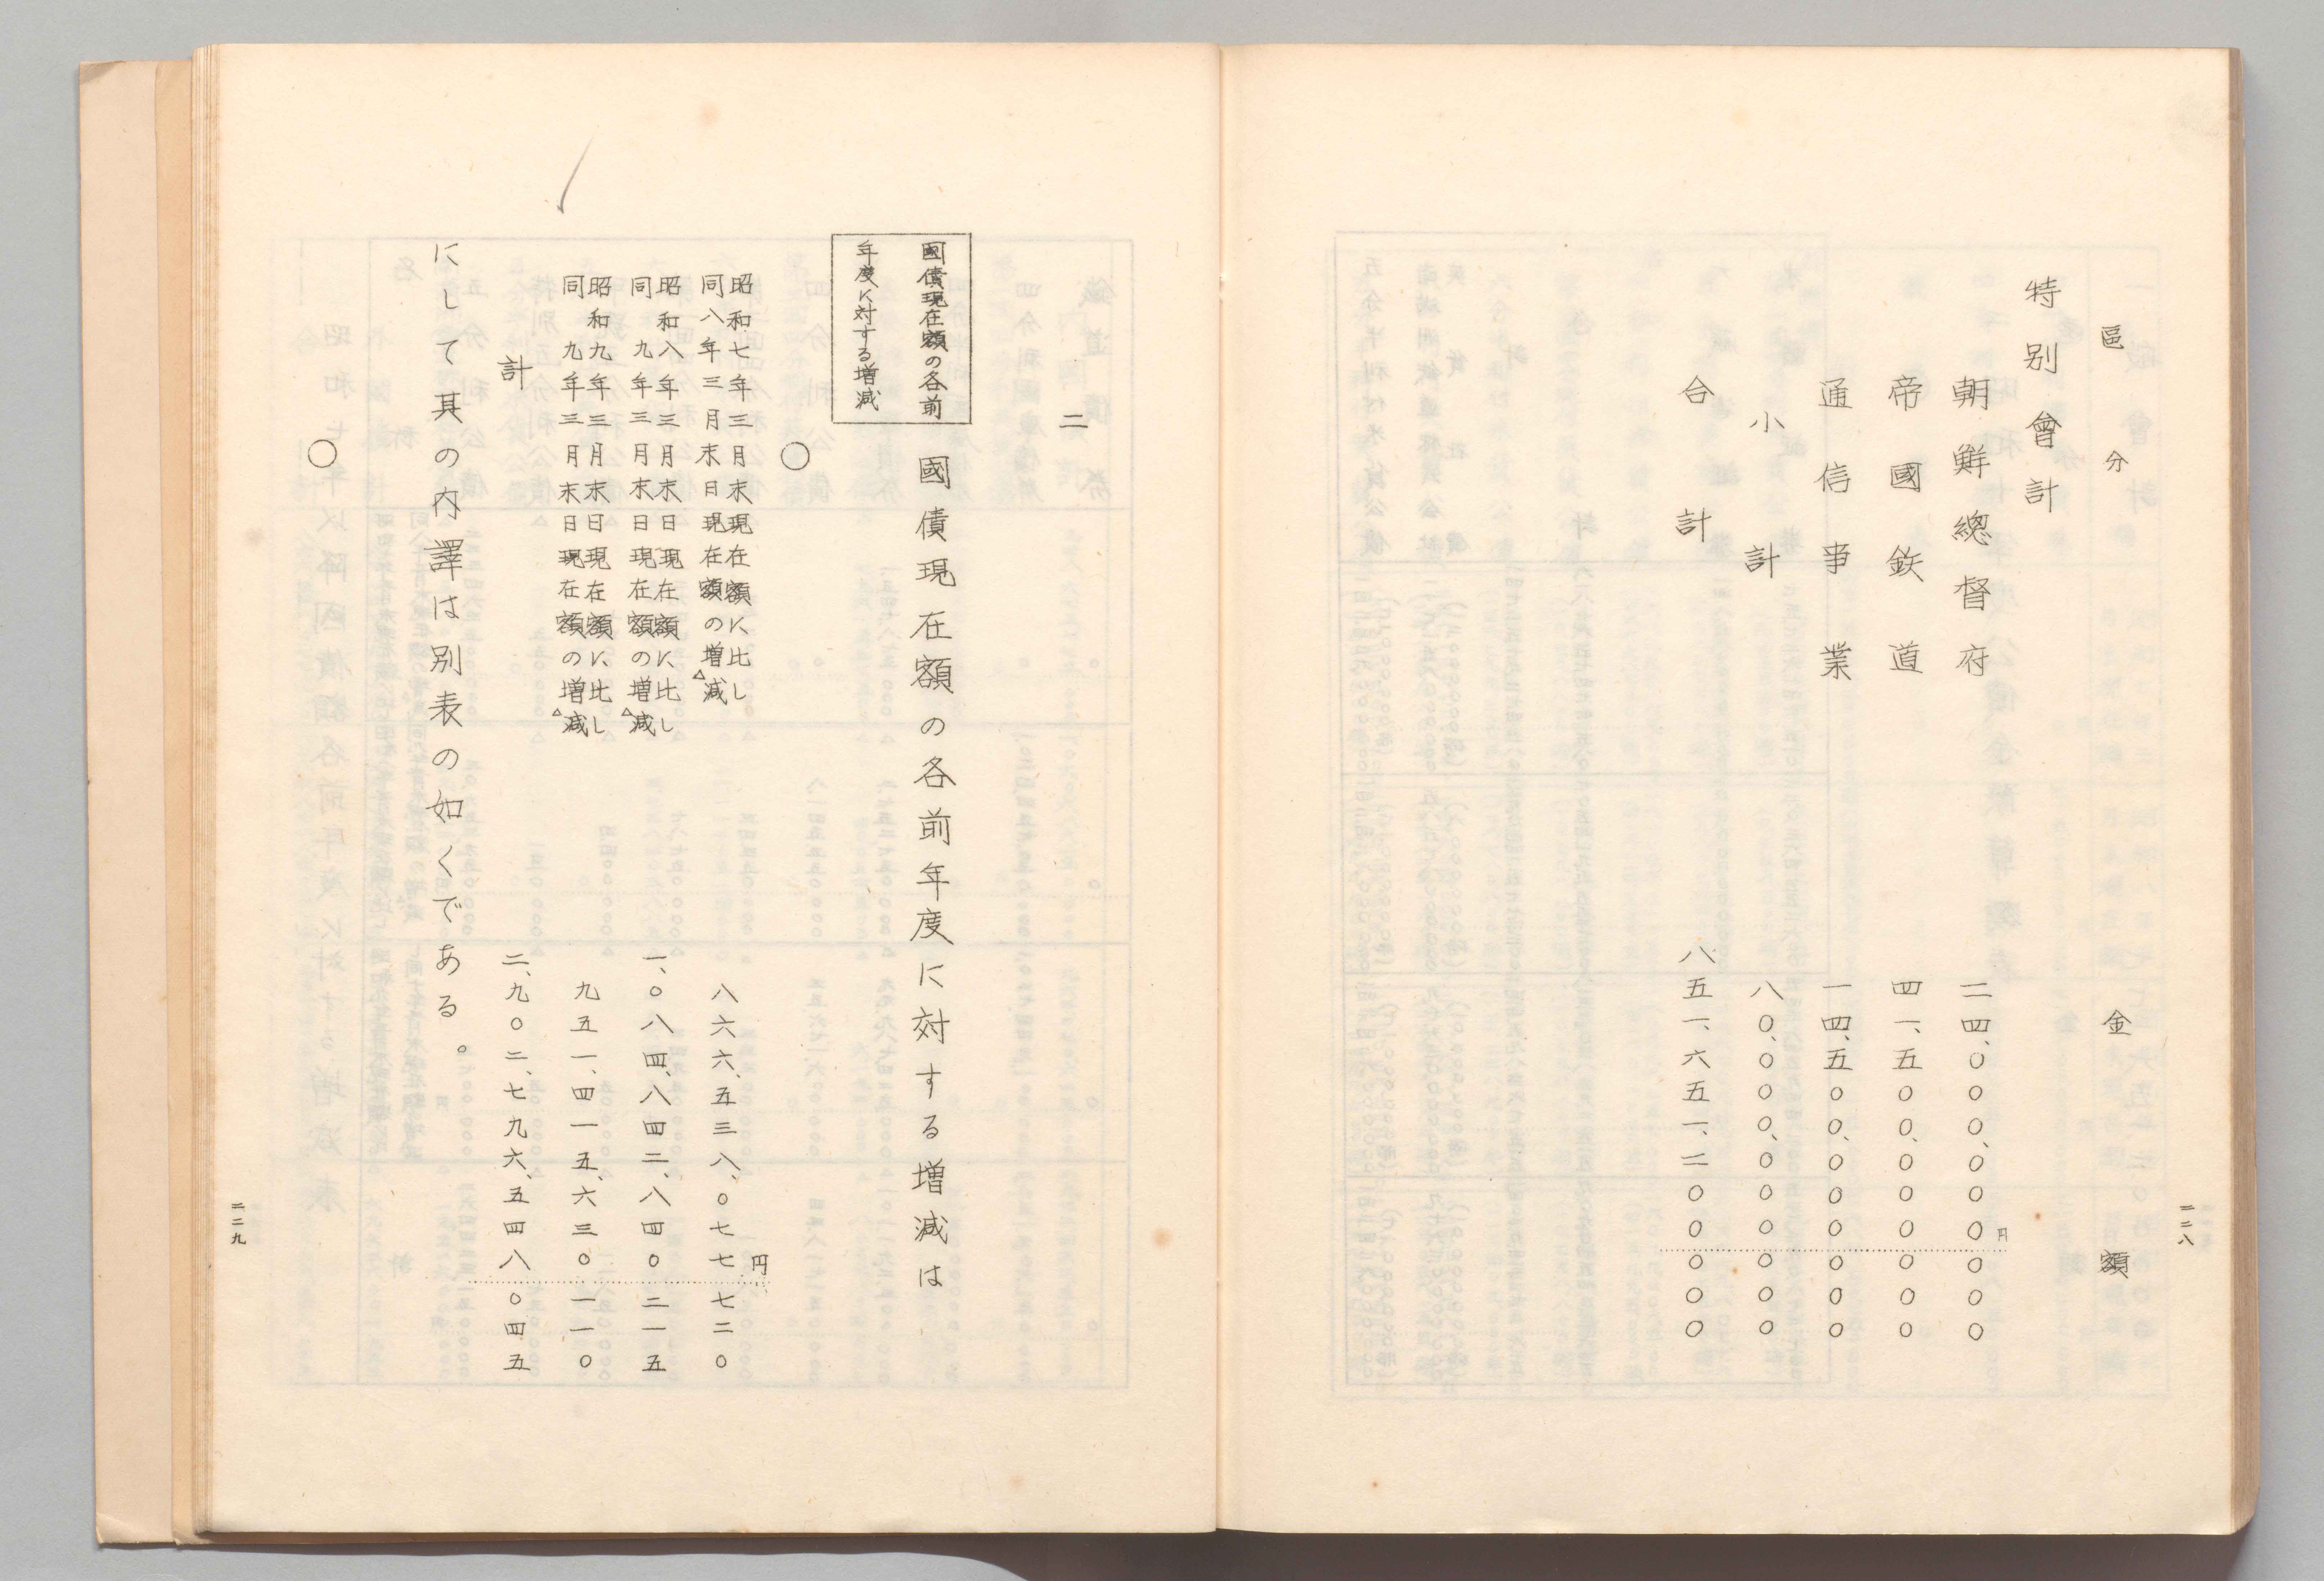 一二八
區分　金額
特別會計
朝鮮總督府　二四、〇〇〇、〇〇〇円〇〇〇
帝國鉄道　四一、五〇〇、〇〇〇〇〇〇
通信事業　一四、五〇〇、〇〇〇〇〇〇
小計　八〇、〇〇〇、〇〇〇〇〇〇
合計　八五一、六五一、二〇〇〇〇〇
二
國債現在額の各前
年度に対する増減
國債現在額の各前年度に対する増減は
〇
昭和七年三月末現在額に比し
同八年三月末日現在額の増△減　八六六、五三八、〇七七円七二〇
昭和八年三月末日現在額に比し
同九年三月末日現在額の増△減　一、〇八四、八四二、八四〇二一五
昭和九年三月末日現在額に比し
同九年三月末日現在額の増△減　九五一、四一五、六三〇一一〇
計　二、九〇二、七九六、五四八〇四五
にして其の内譯は別表の如くである。
〇
一二九